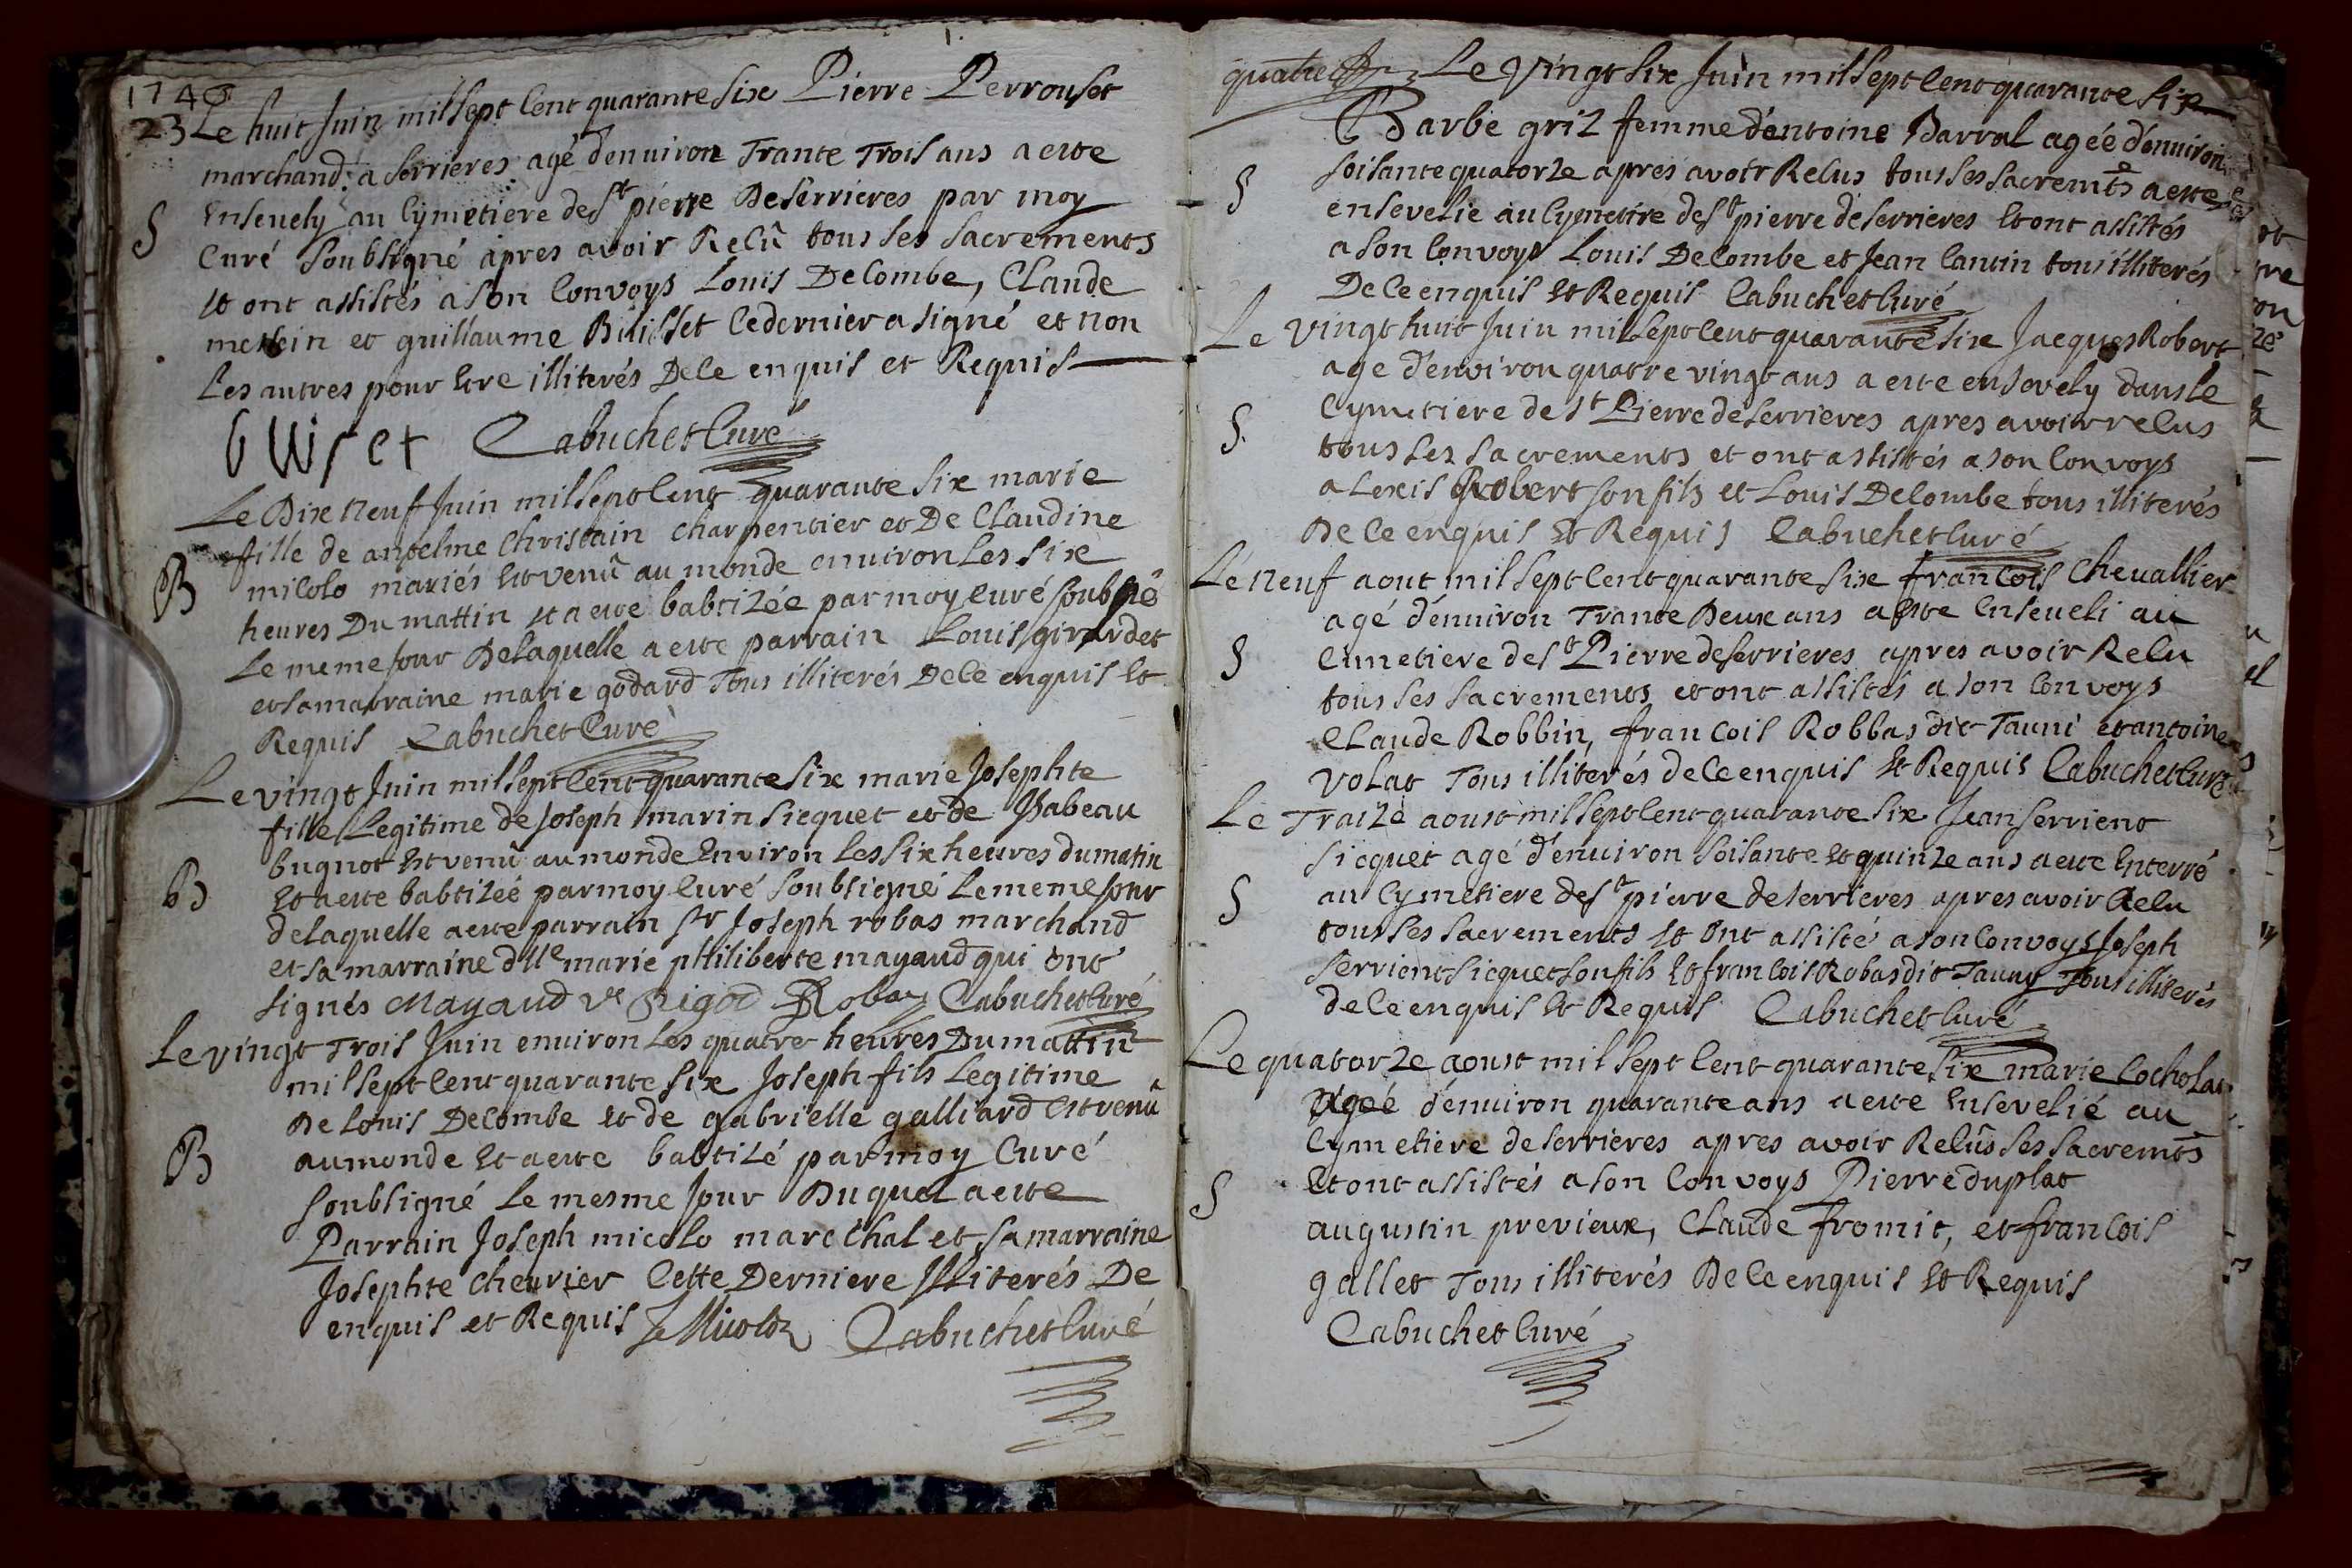 1746
23 Le huit Juin mil sept Cent quarante six Pierre Perrouset
marchand a serrieres agé d'enuiron Trante Trois ans a este
Enseuely au Cymetiere de St pierre De serrieres par moy
S
Curé soubsigné apres avoir Relû tous ses sacrements
Et ont assistés a son Convoys Louis De Combe, Claude
et guillaume Bülisset le dernier a signé et non
Les autres pour Etre illiterés De Ce enquis et Requis
Cabuchet Curé
Le Dix neuf Juin mil sept Cent quarante six marie
fille de antelme Christain Charpentier et De Claudine
B
micolo mariés Est venû au monde enuiron Les six
heures Du mattin et a este babtizée par moy curé soubsné
Le meme Jour De laquelle a este parrain Louis girardet
et sa marraine marie godard Tous illiterés De Ce enquis Et
Requis Cabuchet Curé
Le vingt Juin mil sept Cent quarante six marie Josephte
fille Legitime de Joseph marin sicquet et de Isabeau
bugnot Est venû au monde Environ Les six heures du matin
B
Et a este babtizéé par moy Curé soubsigné Le meme Jour
de laquelle a este parrain sr Joseph robas marchand
et sa marraine dlle marie philiberte mayaud qui ont
signés Mayaud ve Rigod Robas Cabuchet Curé
Le vingt Trois Juin enuiron Les quatre heures Du mattin
mil sept Cent quarante six Joseph fils Legitime
De Louis De Combe Et de gabrielle galliard Est venû
B
au monde Et a este babtizé par moy Curé
soubsigné Le mesme Jour Du quel a este
Parrain Joseph micolo marechal et sa marraine
Josephte Cheurier Cette Derniere Illiterés De
enquis et Requis J Micoloz Cabuchet Curé
quatre Le Vingt six Juin mil sept Cent quarante six
Barbe griz femme d'entoine Barral agéé d'enuiron
S
soisante quatorze apres avoir Relus tous ses sacremts a este
ensevelie au Cymetire de st pierre de serrieres Et ont assistés
a son Convoys Louis De Combe et Jean Cantin tous illiterés
De Ce enquis Et Requis Cabuchet Curé
Le vingt huit Juin mil sept Cent quarante six Jacques Robert
age d'environ quatre vingt ans a este ensevely dans le
S
Cymetiere de st Pierre de serrieres apres avoir relus
tous ses sacrements et ont assistés a son Convoys
alexis Robert son fils et Louis De Combe tous illiterés
De Ce enquis Et Requis Cabuchet Curé
Le neuf aout mil sept Cent quarante six francois Cheuallier
agé d'enuiron Trante Deux ans a este Enseueli au
S
Cimetiere de st Pierre de serrieres apres avoir Relu
tous ses sacrements et ont assistés a son Convoys
Claude Robbin, francois Robbas dit Tauni et antoine
Volat Tous illiterés de Ce enquis Et Requis Cabuchet Curé
Le Traize aoust mil sept Cent quarante six Jean serrient
sicquet agé d'enuiron soisante Et quinze ans a este Enterré
S
au Cymetiere de st pierre de serrieres apres avoir Relu
tous ses sacrements Et ont assisté a son Convoys Joseph
serrient sicquet son fils Et francois Robas dit Tauny Tous illiterés
de Ce enquis Et Requis Cabuchet Curé
Le quatorze aoust mil sept Cent quarante six marie Cocholat
agéé d'enuiron quarante ans a este Ensevelié au
Cymetiere de serrieres apres avoir Relûs ses sacremts
S
Et ont assistés a son Convoys Pierre duplat
augustin previeux, Claude fromit, et francois
gallet Tous illiterés De Ce enquis Et Requis
Cabuchet Curé